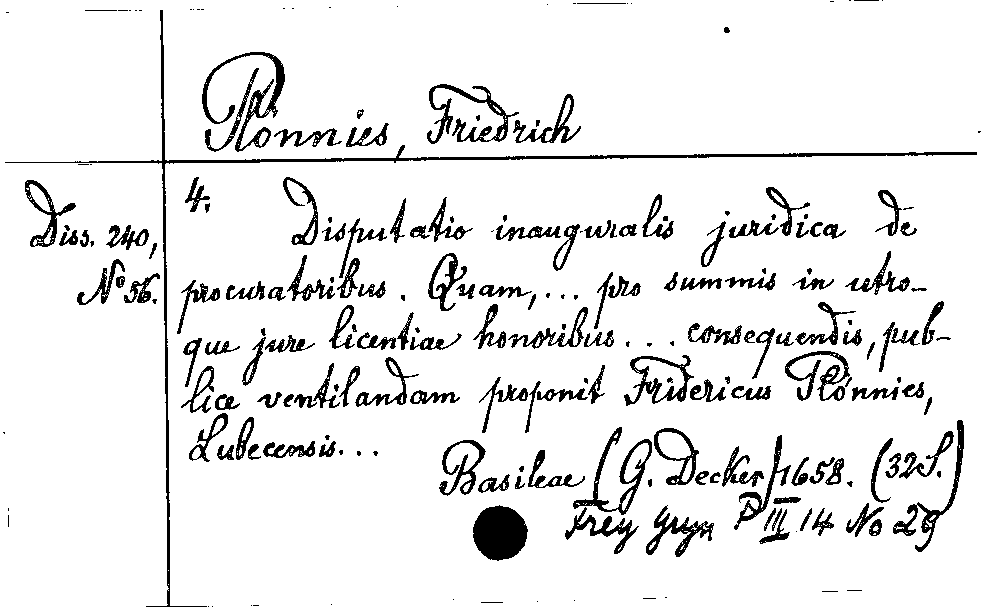 Plönnies, Friedrich
Diss. 240,
No 56.
4. Disputatio inauguralis juridica de
procuratoribus. Quam, ... pro summis in utro-
que jure licentiae honoribus ... consequendis, pub-
lice ventilandam proponit Fridericus Plönnies,
Lubecensis...
Basileae (G. Decker) 1658. (32 S.)
Frey Gryn P III 14 No 29